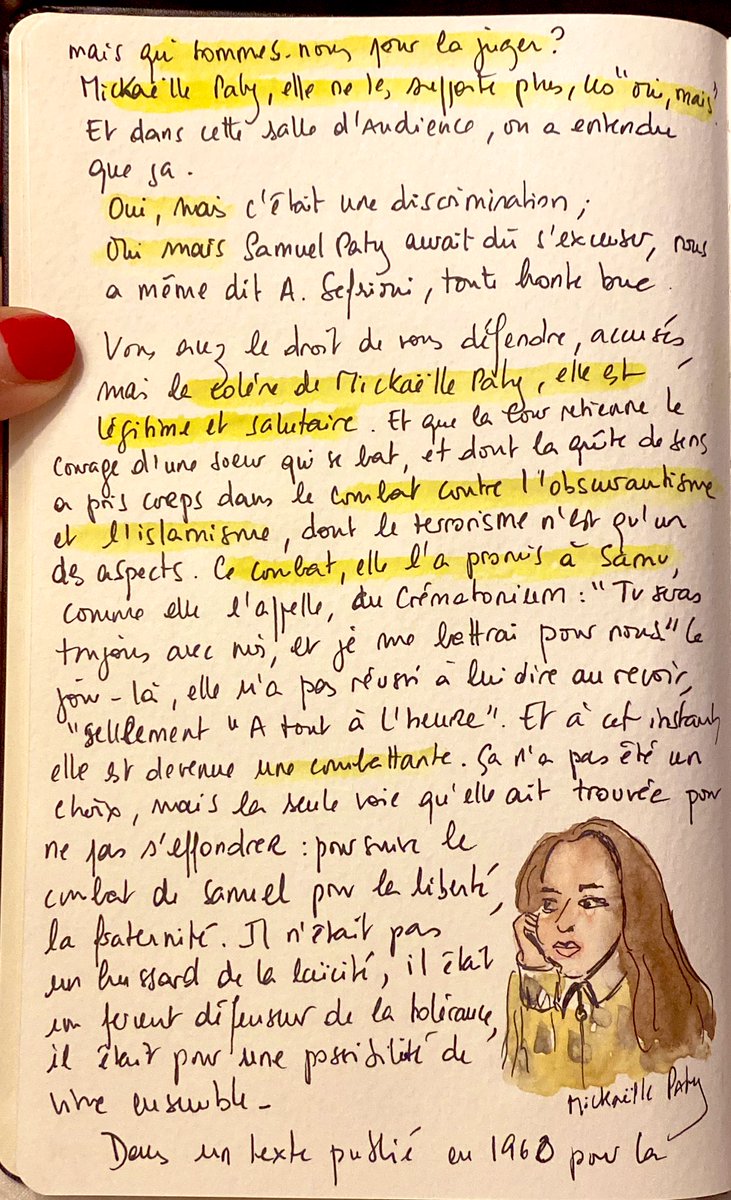 mais qui sommes-nous pour la juger ?
Mickaëlle Paty, elle ne les supporte plus, les "oui, mais".
Et dans cette salle d'Audience, on a entendu
que ça.
Oui, mais c'était une discrimination ;
Oui mais Samuel Paty aurait dû s'excuser, nous
a même dit A. Sefrioui, toute honte bue.
Vous avez le droit de vous défendre, accusés,
mais la colère de Mickaëlle Paty, elle est
légitime et salutaire. Et que la Cour retienne le
courage d'une soeur qui se bat, et dont la quête de sens
a pris corps dans le combat contre l'obscurantisme
et l'islamisme, dont le terrorisme n'est qu'un
des aspects. Ce combat, elle l'a promis à Samu,
comme elle l'appelle, au Crématorium : "Tu seras
toujours avec moi, et je me battrai pour nous" Ce
jour-là, elle n'a pas réussi à lui dire au revoir,
"seulement "A tout à l'heure". Et à cet instant,
elle est devenue une combattante. Ça n'a pas été un
choix, mais la seule voie qu'elle ait trouvée pour
ne pas s'effondrer : poursuivre le
combat de Samuel pour la liberté,
la fraternité. Il n'était pas
un hussard de la laïcité, il était
un fervent défenseur de la tolérance,
il était pour une possibilité de
vivre ensemble_
Mickaëlle Paty
Dans un texte publié en 1960 pour la